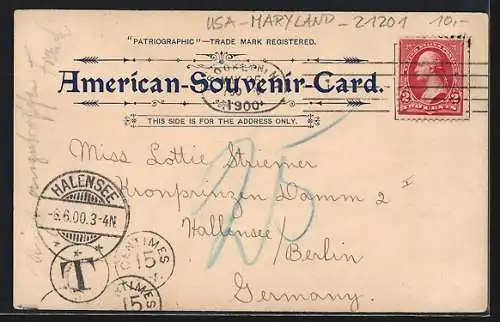 USA-MARYLAND-21201 10,-
"PATRIOGRAPHIC"—TRADE MARK REGISTERED.
American-Souvenir-Card.
1900
THIS SIDE IS FOR THE ADDRESS ONLY.
2 2
Miss Lottie Striemer
Kronprinzen Damm 2 I
Hallensee/
Berlin
Germany.
25
HALENSEE
-6.6.00.3-4N
T
CENTIMES
15
CENTIMES
15